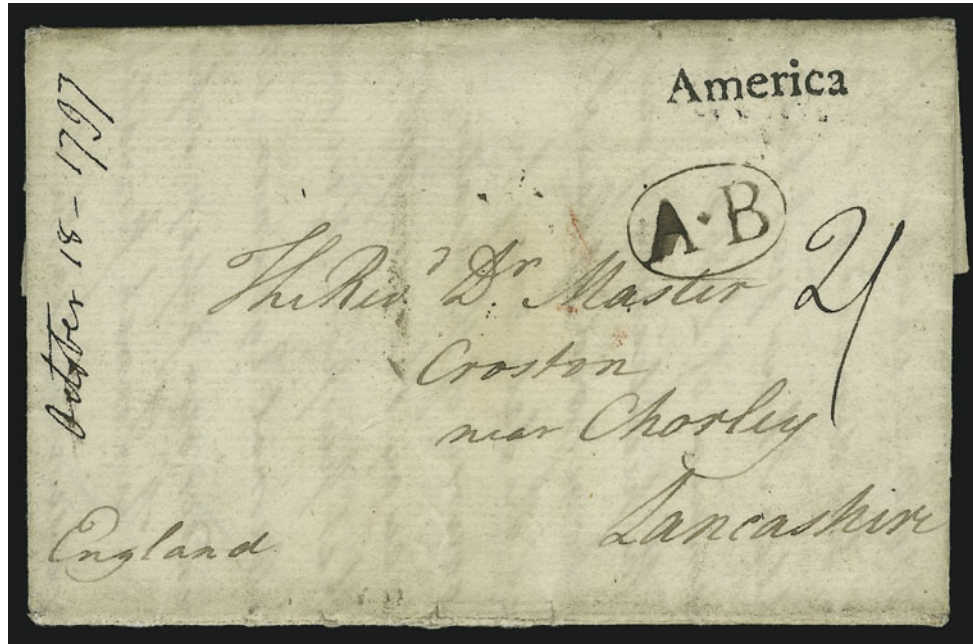 October 18 - 1797
America
A·B
The Revd Dr. Master
2/
Croston
near Chorley
Lancashire
England